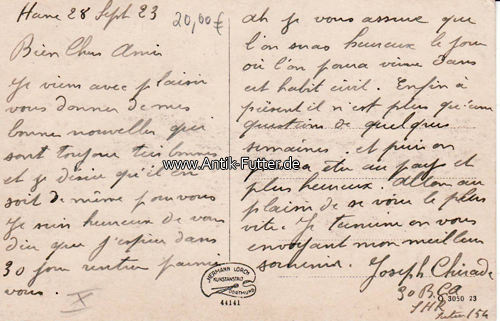 Ham 28 Sept 23
20,00€
Bien Cher Ami
Je viens avec plaisir
vous donner de mes
bonnes nouvelles qui
sont toujours très bonnes
et je désire qu'il en
soit de même pour vous
Je suis heureux de vous
dire que j'espère dans
30 jours rentrer parmi
vous.
X
ah je vous assure que
l'on sera heureux le jour
où l'on poura vivre dans
cet habit civil. Enfin à
présent il n'est plus qu'une
question de quelques
semaines. et puis on
sera au pays et
plus heureux. Allons au
plaisir de se voir le plus
vite. Je termine en vous
envoyant mon meilleur
souvenir.
Joseph
30
www.Antik-Futter.de
HERMANN LORCH
KUNSTANSTALT
DORTMUND
44141
O 3050 23